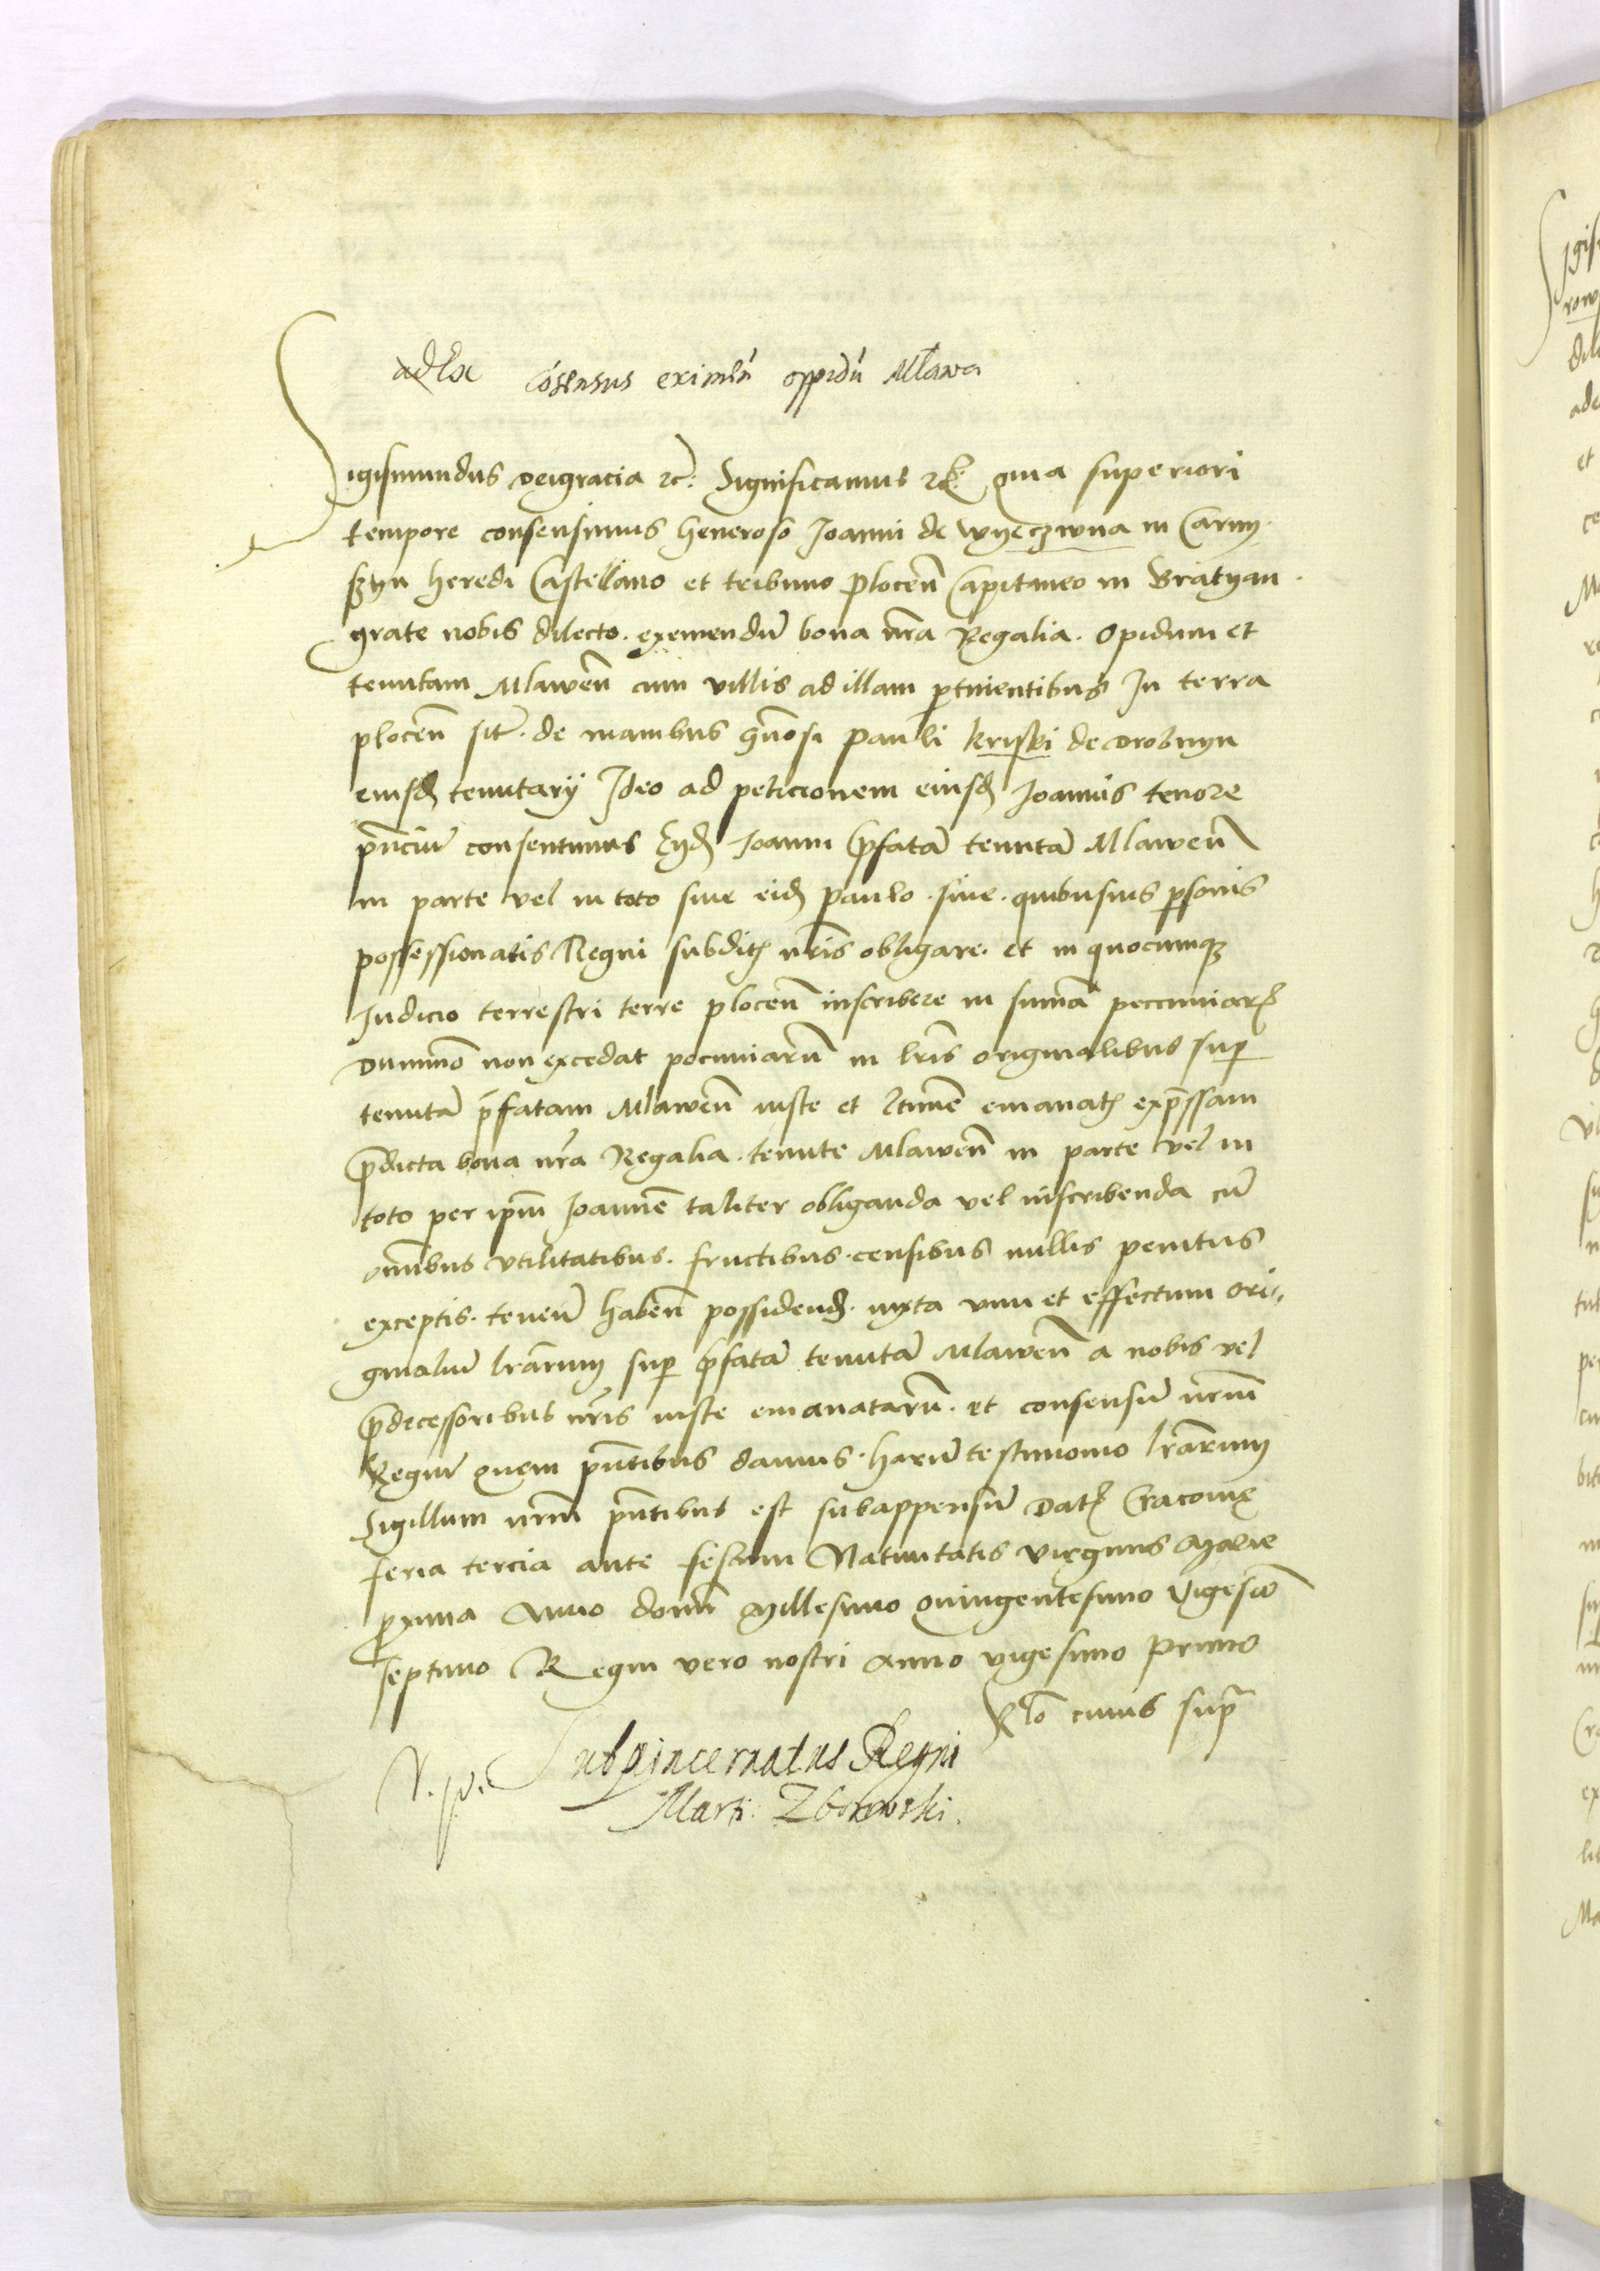 Cósensus eximéń oppidū Mława
Sigismundus Deigracia etc: Significamus etc. quia superiori
tempore consensimus Generoso Joanni de Wyeczwna in Carny.
szyn heredi Castellano et tribuno plocen̄ Capitaneo in Bratyan.
grate nobis dilecto. exemendū bona nr̄a Regalia. Opidum et
tenutam Mlawen̄ cum villis ad illam ꝑtinentibus In terra
plocen̄ sit̄. de manibus gn̄osi pauli kriski de Drobnyn
eiusd̄ tenutarÿ Ideo ad peticionem eiusd̄ Joannis tenore
pn̄ciū consentimus Eyd̄ Joanni p̄fatā tenutā Mlawen̄
in parte vel in toto siue eid̄ paulo. siue. quibusuis ꝑsonis
possessionatis Regni subdit̄ nr̄is obligare. et in quocumqꝫ
Judicio terrestri terre plocen̄ inscribere in sum̄a peccuniar̄
Dum̄o non excedat pecuniarū in lr̄is originalibus suꝑ
tenutā p̄fatam Mlawen̄ iuste et ltīme emanat̄ exp̄ssam
p̄dicta bona nr̄a Regalia. tenute Mlawen̄ in parte vel in
toto per ip̄m Joannē taliter obliganda vel inscribenda cū
om̄ibus vtilitatibus. fructibus. censibus nullis penitus
exceptis. tenen̄ haben̄ possidend̄. iuxta vim et effectum ori-
ginaliū lr̄arum suꝑ p̄fatā tenutā Mlawen̄ a nobis vel
p̄decessoribus nr̄is iuste emanatarū. et consensū nr̄m
Regiū quem pn̄tibus damus. hariū testimonio lr̄arum
Sigillum nr̄m pn̄tibus est subappensū Dat̄ Cracouię
feria tercia ante festum Natiuitatis virginis Marie
ꝓxima Anno domī Millesimo quingentesimo Vigesīo
septimo Regni vero nostri Anno vigesimo primo
Rl̄o cuius supr̄
N. p. Subpincernatus Regni
Marti: Zborowski.